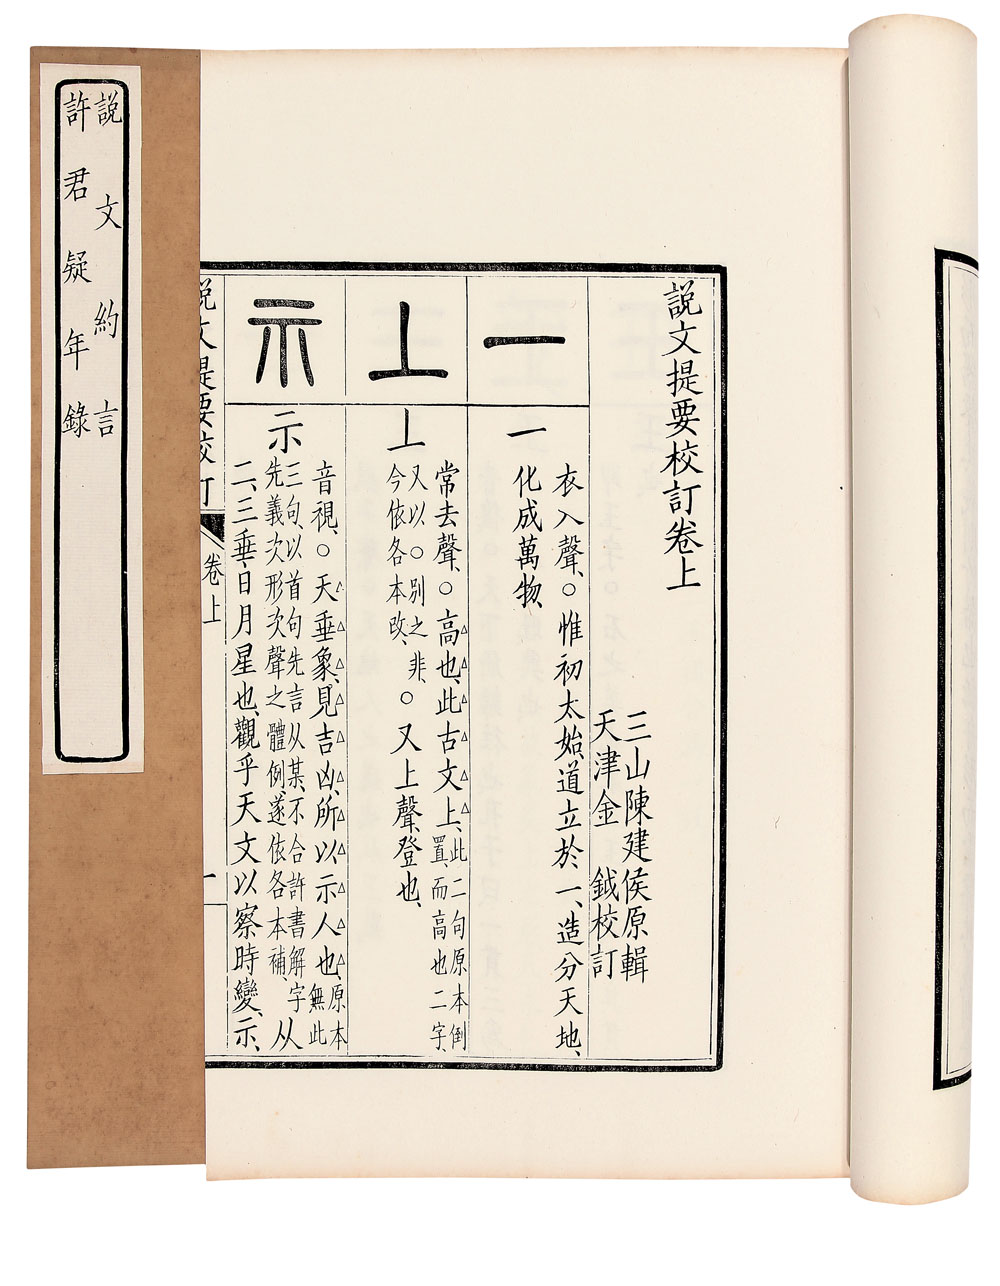 説文約言
許君疑年錄
説文提要校訂卷上
三山陳建侯原輯
天津金鉞校訂
一
一
衣入聲、○惟初太始、道立於一、造分天地、
化成萬物、
上
上
常去聲、○高也、此古文上、此二句原本倒
置、而高也二字、
又以○別之非、
今依各本改、○又上聲、登也、
示
示
音視、○天垂象、見吉凶、所以示人也、原本
無此
三句、以首句先言从某、不合許書解字
先義次形次聲之體例、遂依各本補、从
二、三垂、日月星也、觀乎天文以察時變、示、
説文提要校訂
卷上
一